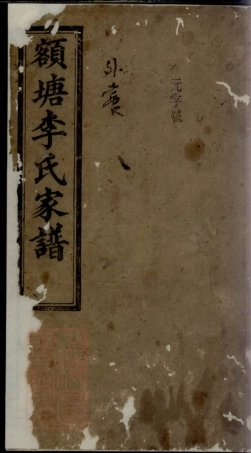 元字號
額塘李氏家譜